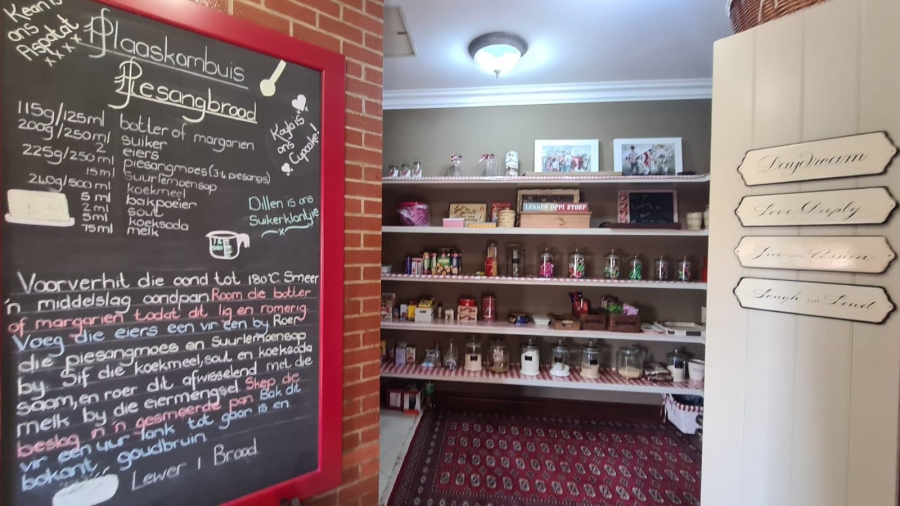 Kean is
ons
Aspatat
xxxx
Plaaskombuis
Piesangbrood
115g/125ml botter of margarien
200g/250ml suiker
2 eiers
225g/250ml piesangmoes (3-4 piesangs)
15ml suurlemoensap
240g/500ml koekmeel
5ml bakpoeier
2ml sout
5ml koeksoda
75ml melk
Kayla is
ons
Cupcake!
Dillen is ons
Suikerklontjie
Voorverhit die oond tot 180°C. Smeer
'n middelslag oondpan. Room die botter
of margarien totdat dit lig en romerig.
Voeg die eiers een vir een by. Roer
die piesangmoes en suurlemoensap
by. Sif die koekmeel, sout en koeksoda
saam, en roer dit afwisselend met die
melk by die eiermengsel. Skep die
beslag in 'n gesmeerde pan. Bak dit
vir een uur lank tot gaar is en
bokant goudbruin.
Lewer 1 Brood
LEKKER OPPI STOEP
Daydream
Love Deeply
Live with Passion
Laugh out Loud